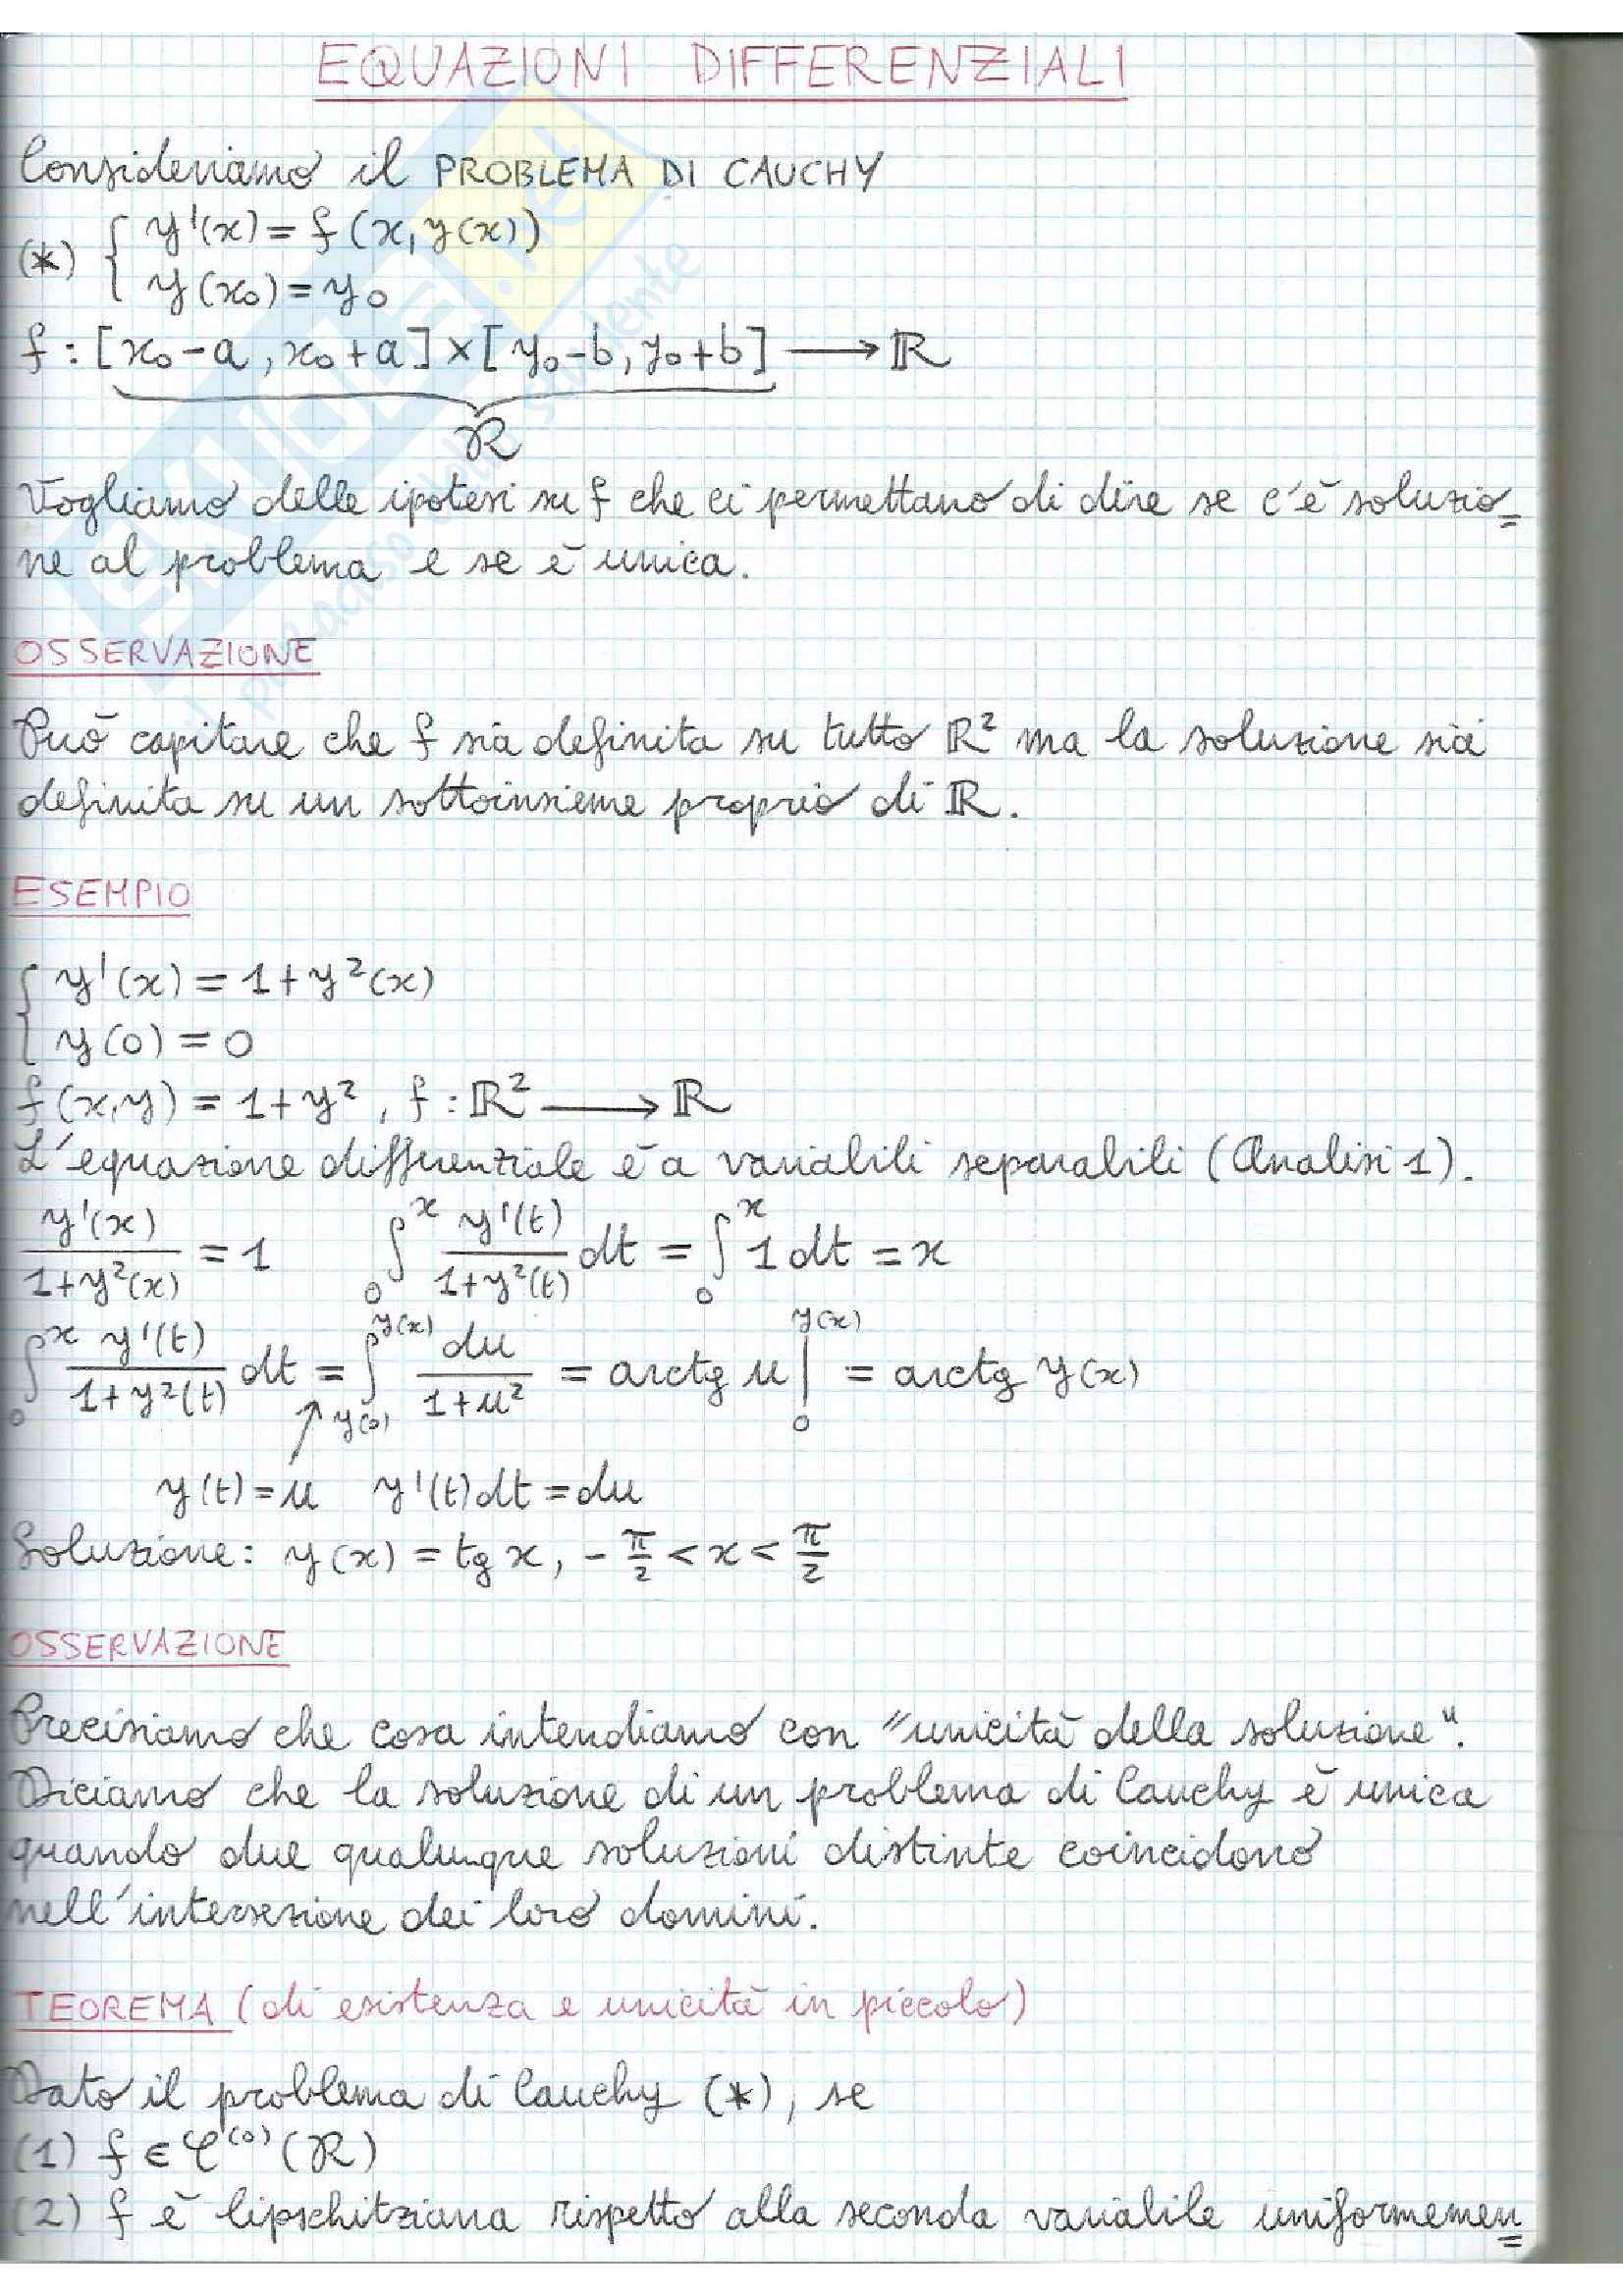 EQUAZIONI DIFFERENZIALI
Consideriamo il PROBLEMA DI CAUCHY
(*) { y'(x) = f(x, y(x))
y(x₀) = y₀
f : [x₀-a, x₀+a] × [y₀-b, y₀+b] ⟶ ℝ
R
Vogliamo delle ipotesi su f che ci permettano di dire se c'è soluzio=
ne al problema e se è unica.
OSSERVAZIONE
Può capitare che f sia definita su tutto ℝ² ma la soluzione sia
definita su un sottoinsieme proprio di ℝ.
ESEMPIO
{ y'(x) = 1+y²(x)
y(0) = 0
f(x,y) = 1+y², f : ℝ² ⟶ ℝ
L'equazione differenziale è a variabili separabili (Analisi 1).
y'(x)/(1+y²(x)) = 1   ∫₀ˣ y'(t)/(1+y²(t)) dt = ∫₀ˣ 1 dt = x
∫₀ˣ y'(t)/(1+y²(t)) dt = ∫_{y(0)}^{y(x)} du/(1+u²) = arctg u |₀^{y(x)} = arctg y(x)
↗
y(t) = u   y'(t)dt = du
Soluzione: y(x) = tg x, -π/2 < x < π/2
OSSERVAZIONE
Precisiamo che cosa intendiamo con "unicità della soluzione".
Diciamo che la soluzione di un problema di Cauchy è unica
quando due qualunque soluzioni distinte coincidono
nell'intersezione dei loro domini.
TEOREMA (di esistenza e unicità in piccolo)
Dato il problema di Cauchy (*), se
(1) f ∈ C⁽⁰⁾(R)
(2) f è lipschitziana rispetto alla seconda variabile uniformemen=